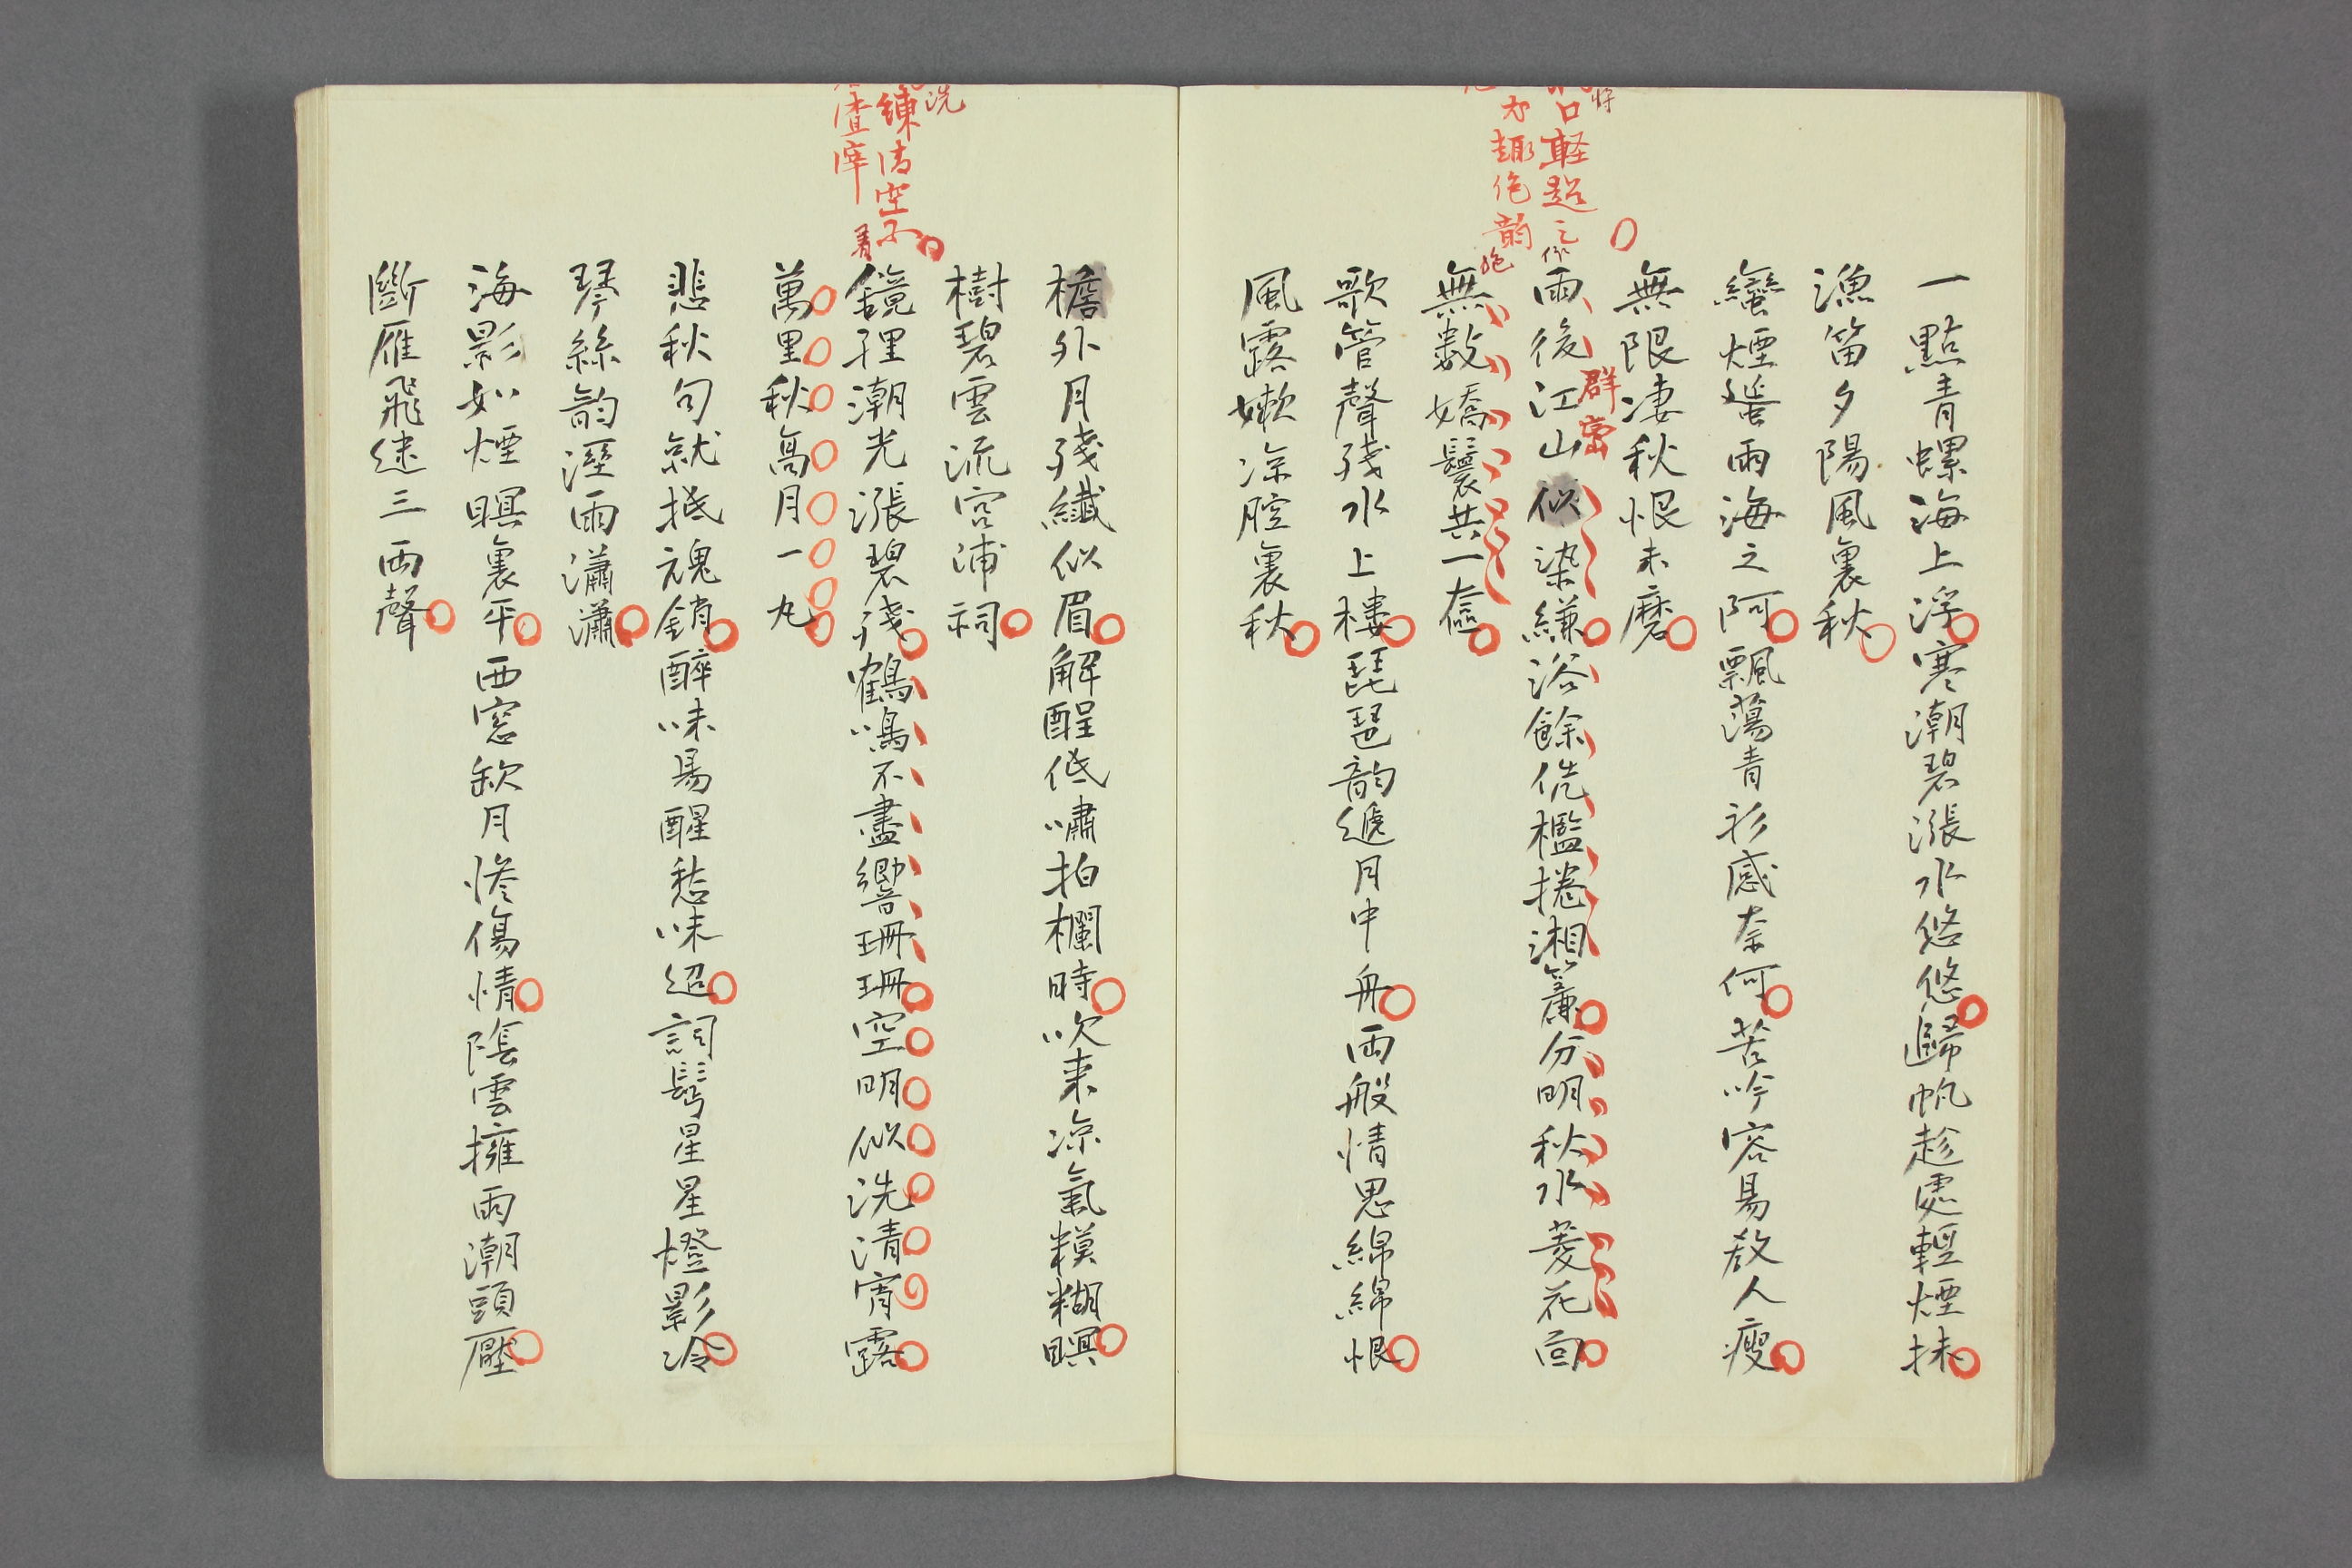 一點青螺海上浮寒潮碧漲水悠悠歸帆趁處輕煙抹
漁笛夕陽風裏秋
蠻煙蜑雨海之阿飄蕩青衫感奈何苦吟容易教人瘦
無限凄秋恨未磨
雨後江山似染縑浴餘侊檻捲湘簾分明秋水菱花面
群鬟
無數嬌鬟共一奩
歌管聲殘水上樓琵琶韵遞月中舟兩般情思綿綿恨
風露嫩凉腔裏秋
口軽趂之
才趣絶韵
檐外月殘纖似眉解酲低嘯拍欄時吹来凉氣糢糊暝
樹碧雲流宮浦祠
鏡裡潮光漲碧殘鶴鳴不盡響珊珊空明似洗清宵露
萬里秋高月一丸
洗
練清空不
渣滓
着
悲秋句就抵魂銷醉味易醒愁味迢詞鬂星星燈影冷
琴絲韵溼雨瀟瀟
海影如煙暝裏平西窓秋月惨傷情陰雲擁雨潮頭壓
斷雁飛迷三兩聲